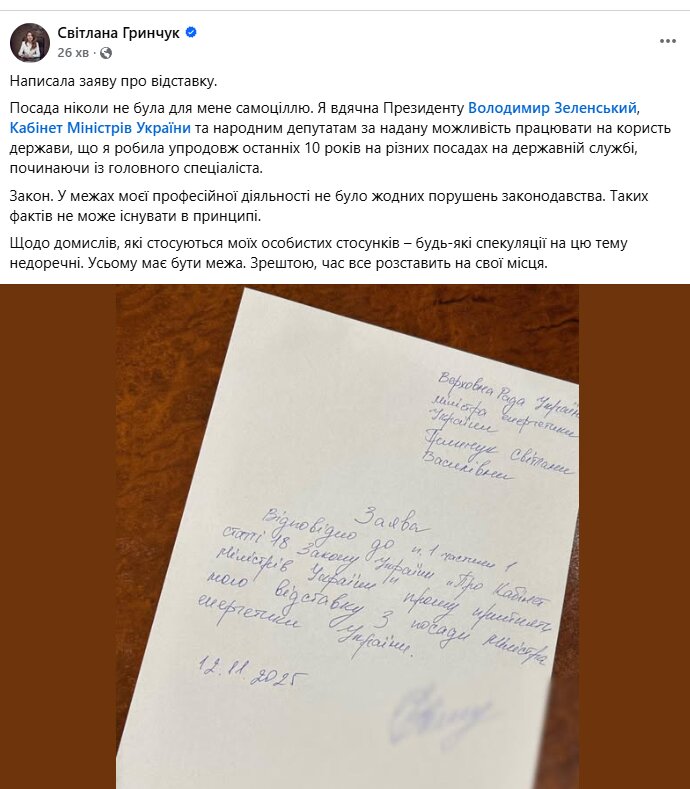 Світлана Гринчук
26 хв ·
Написала заяву про відставку.
Посада ніколи не була для мене самоціллю. Я вдячна Президенту Володимир Зеленський,
Кабінет Міністрів України та народним депутатам за надану можливість працювати на користь
держави, що я робила упродовж останніх 10 років на різних посадах на державній службі,
починаючи із головного спеціаліста.
Закон. У межах моєї професійної діяльності не було жодних порушень законодавства. Таких
фактів не може існувати в принципі.
Щодо домислів, які стосуються моїх особистих стосунків – будь-які спекуляції на цю тему
недоречні. Усьому має бути межа. Зрештою, час все розставить на свої місця.
Верховна Рада Україн
міністра енергетики
України
Гринчук Світлани
Василівни
Заява
Відповідно до п. 1 частини 1
статі 18 Закону України „Про Кабінет
Міністрів України" прошу прийняти
мою відставку з посади міністра
енергетики України.
12.11.2025